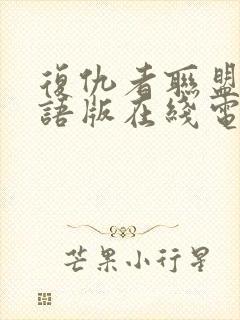 復仇者聯盟
語版在綫電
芒果小行星